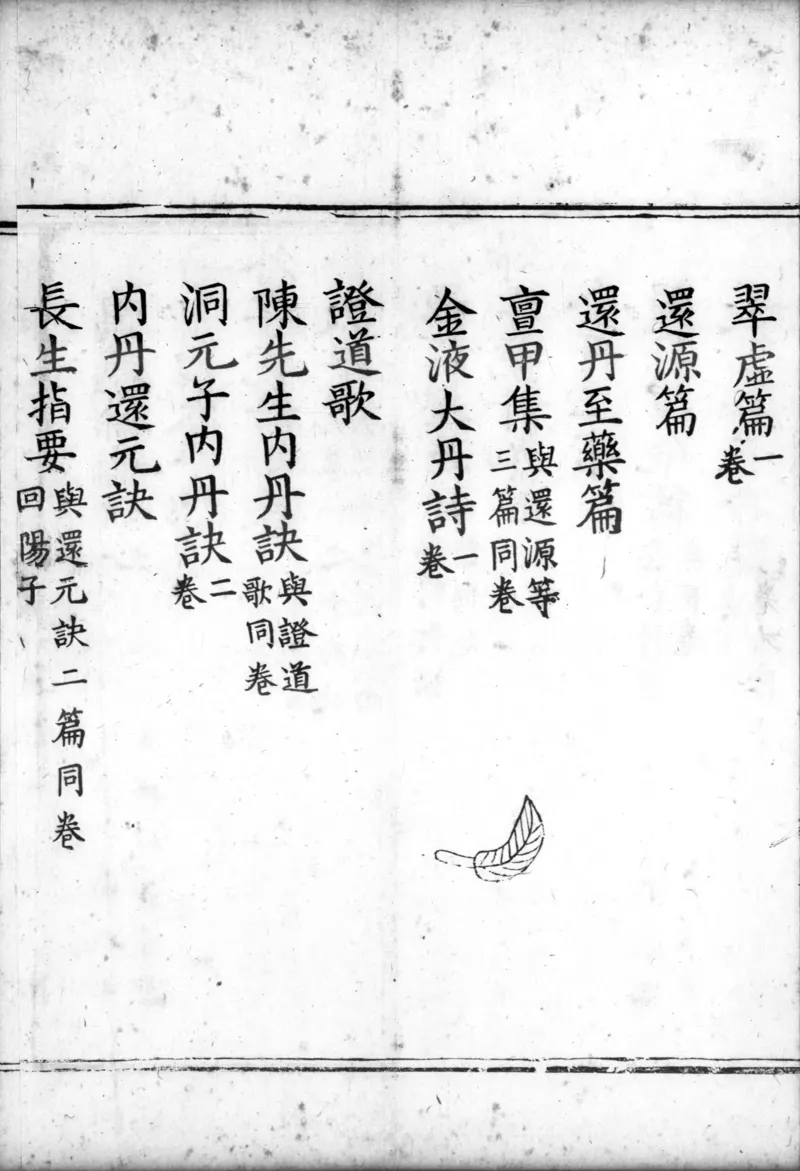 翠虛篇一卷
還源篇
還丹至藥篇
亶甲集與還源等三篇同卷
金液大丹詩一卷
證道歌
陳先生內丹訣與證道歌同卷
洞元子內丹訣二卷
內丹還元訣
長生指要與還元訣二篇同卷回陽子